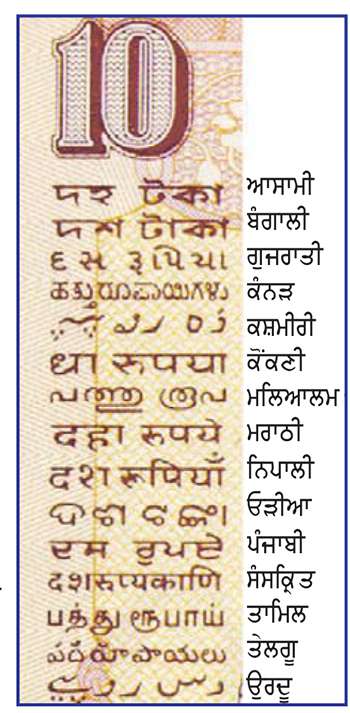 10
দহ টকা ਆਸਾਮੀ
দশ টাকা ਬੰਗਾਲੀ
દસ રૂપિયા ਗੁਜਰਾਤੀ
ಹತ್ತು ರೂಪಾಯಿಗಳು ਕੰਨੜ
ਕਸ਼ਮੀਰੀ
धा रुपया ਕੋਂਕਣੀ
പത്തു രൂപ ਮਲਿਆਲਮ
दहा रुपये ਮਰਾਠੀ
दश रुपियाँ ਨਿਪਾਲੀ
ଦଶ ଟଙ୍କା ਓੜੀਆ
ਦਸ ਰੁਪਏ ਪੰਜਾਬੀ
दशरूप्यकाणि ਸੰਸਕ੍ਰਿਤ
பத்து ரூபாய் ਤਾਮਿਲ
పది రూపాయలు ਤੇਲਗੂ
ਉਰਦੂ